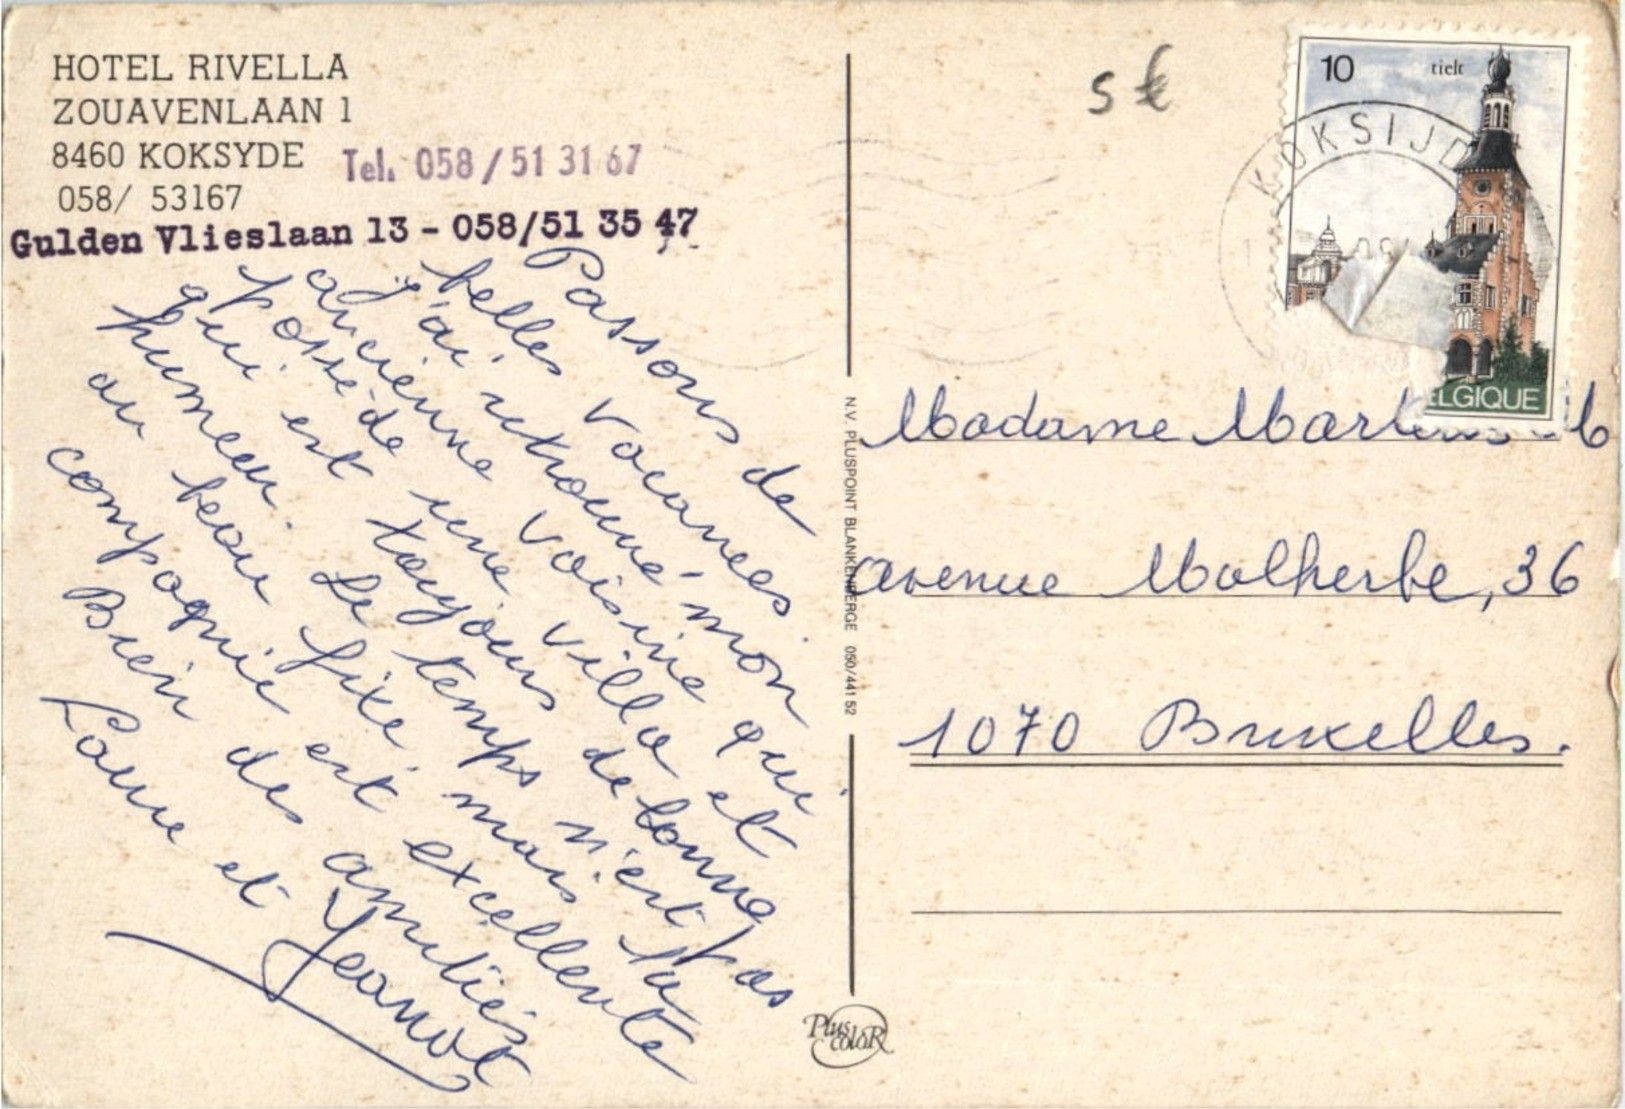 HOTEL RIVELLA
ZOUAVENLAAN 1
8460 KOKSYDE
Tel. 058/51 31 67
058/ 53167
Gulden Vlieslaan 13 - 058/51 35 47
Passons de
belles vacances.
J'ai retrouvé mon
ancienne voisine qui
possède une villa et
qui est toujours de bonne
humeur. Le temps n'est pas
au beau fixe, mais la
compagnie est excellente
Bien des amitiés
et Jeanot
N.V. PLUSPOINT BLANKENBERGE 050/441 52
Plus coloR
5 €
10 tielt
KOKSIJD
ELGIQUE
Madame
avenue Malherbe, 36
1070 Bruxelles.